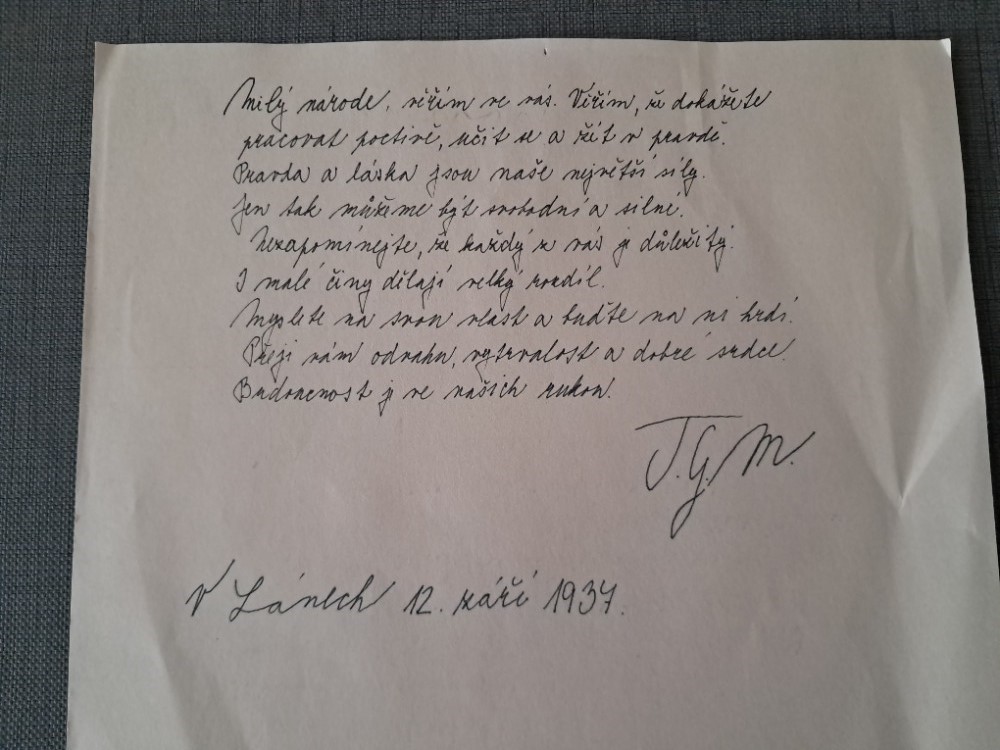 Milý národe, věřím ve vás. Věřím, že dokážete
pracovat poctivě, učit se a žít v pravdě.
Pravda a láska jsou naše největší síly.
Jen tak můžeme být svobodní a silné.
Nezapomínejte, že každý z vás je důležitý.
I malé činy dělají velký rozdíl.
Myslete na svou vlast a buďte na ni hrdí.
Přeji vám odvahu, vytrvalost a dobré srdce.
Budoucnost je ve našich rukou.
T.G.M.
V Lánech 12. září 1937.